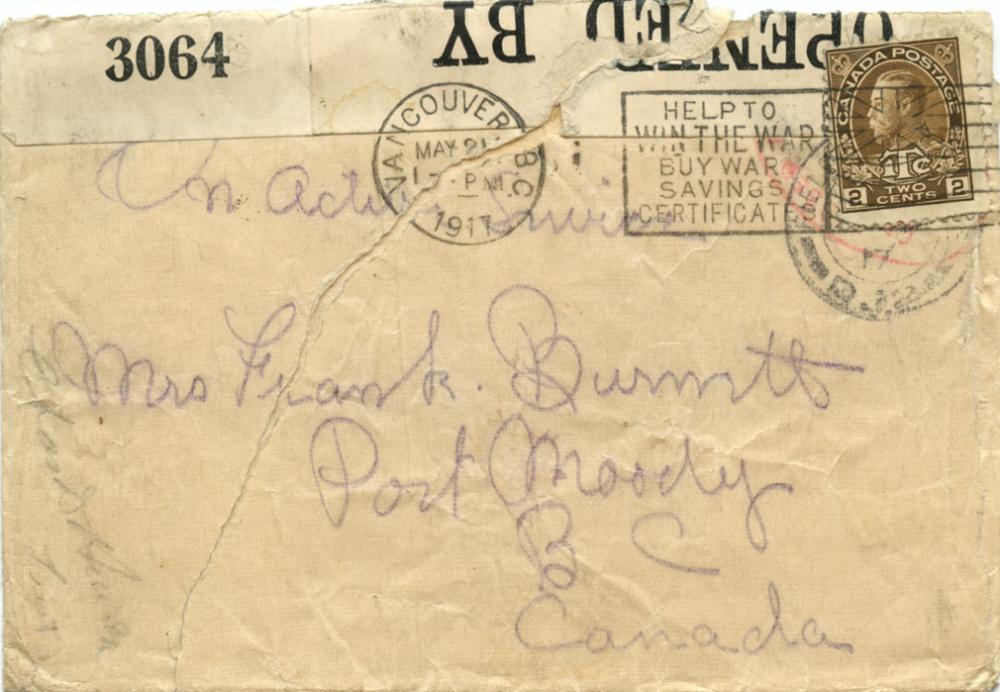 3064
OPENED BY
VANCOUVER B.C.
MAY 21
PM
1917
HELP TO
WIN THE WAR
BUY WAR
SAVINGS
CERTIFICATES
CANADA POSTAGE
1Tc
2 TWO CENTS 2
17
On Active Service
Mrs Frank. Burnett
Port Moody
B C
Canada